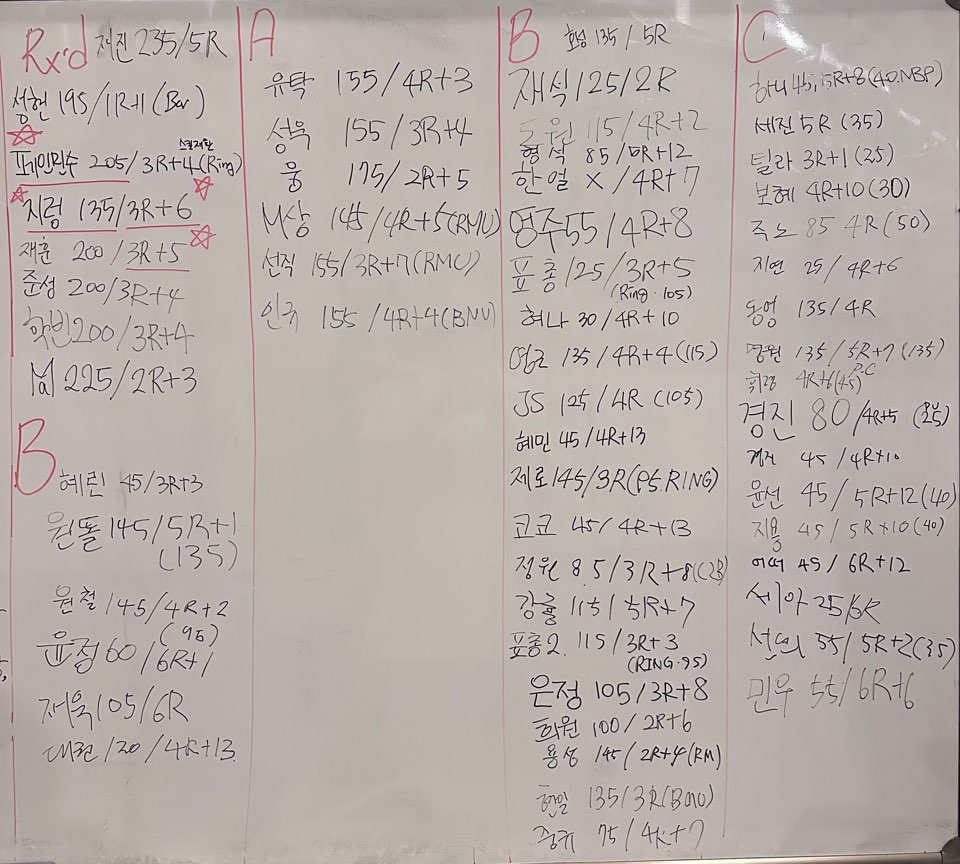 Rx'd
저진 235/5R
성헌 195/11R+1 (Bar)
205/3R+4 (Ring)
지렁 135/3R+6
재훈 200/3R+5
준성 200/3R+4
학빈 200/3R+4
M 225/2R+3
B
혜린 45/3R+3
원똘 145/5R+1
(135)
원철 145/4R+2
(95)
윤정 60/6R+1
재욱 105/6R
대권 120/4R+13
A
유탁 155/4R+3
성욱 155/3R+4
웅 175/2R+5
M상 145/4R+5 (RMU)
선직 155/3R+7 (RMU)
인규 155/4R+4 (BMU)
B
효성 135/5R
재식 125/2R
도원 115/4R+2
형석 85/5R+12
한얼 X/4R+7
영주 55/4R+8
표총 125/3R+5
(Ring·105)
혀나 30/4R+10
영근 135/4R+4 (115)
JS 125/4R (105)
혜민 45/4R+13
제로 145/3R (PS.RING)
코코 45/4R+13
정원 85/3R+8 (C2B)
강률 115/5R+7
표총2. 115/3R+3
(RING·95)
은정 105/3R+8
화원 100/2R+6
용성 145/2R+4 (RM)
현일 135/3R (BMU)
중귀 75/4R+7
C
하니 45, 5R+8 (40.NBP)
세진 5R (35)
틸라 3R+1 (25)
보혜 4R+10 (30)
죽노 85 4R (50)
지연 25/4R+6
동영 135/4R
명원 135/5R+7 (135)
4R+6 (45) P.C
경진 80/4R+5
45/4R+10
윤선 45/5R+12 (40)
지용 45/5R+10 (40)
45/6R+12
세아 25/6R
선의 55/5R+2 (35)
민우 55/6R+6